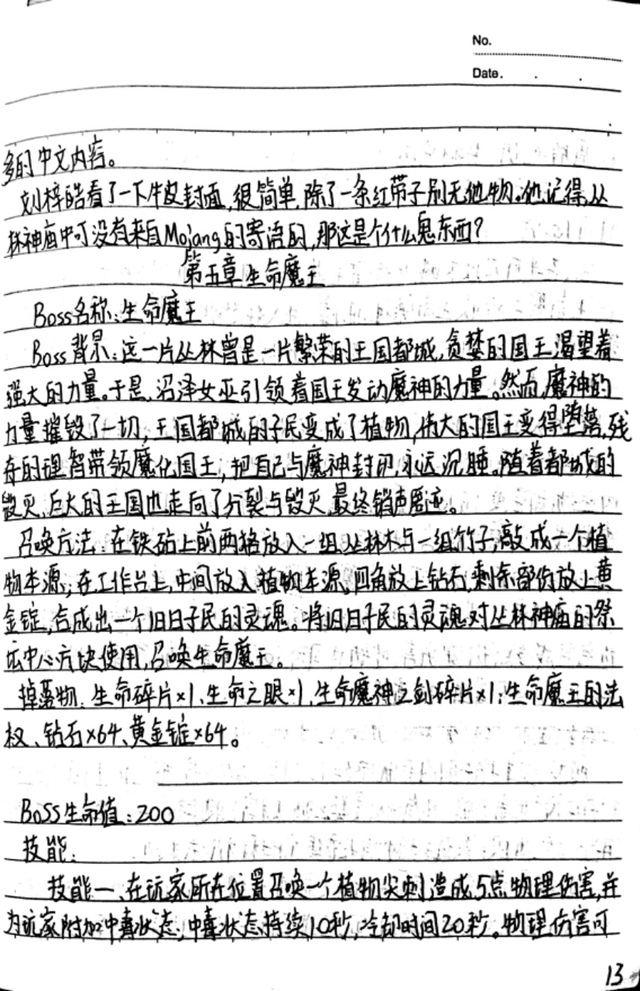 No.
Date. . .
多的中文内容。
刘梓皓看了一下牛皮封面,很简单,除了一条红带子别无他物。他记得,丛
林神庙中可没有来自Mojang的寄语的,那这是个什么鬼东西?
第五章生命魔王
Boss名称:生命魔王
Boss背景:这一片丛林曾是一片繁荣的王国都城,贪婪的国王渴望着
强大的力量。于是,沼泽女巫引领着国王发动魔神的力量。然而,魔神的
力量摧毁了一切,王国都城的子民变成了植物,伟大的国王变得堕落,残
存的理智带领魔化国王,把自己与魔神封印,永远沉睡。随着都城的
毁灭,巨大的王国也走向了分裂与毁灭,最终销声匿迹。
召唤方法:在铁砧上前两格放入一组丛林木与一组竹子,敲成一个植
物本源,在工作台上,中间放入植物本源,四角放上钻石,剩余部份放上黄
金锭,合成出一个旧日子民的灵魂。将旧日子民的灵魂对丛林神庙的祭
坛中心方块使用,召唤生命魔王。
掉落物:生命碎片×1、生命之眼×1、生命魔神之剑碎片×1;生命魔王的法
杖、钻石×64、黄金锭×64。
Boss生命值:200
技能:
技能一、在玩家所在位置召唤一个植物尖刺,造成5点物理伤害,并
为玩家附加中毒状态,中毒状态持续10秒,冷却时间20秒。物理伤害可
13